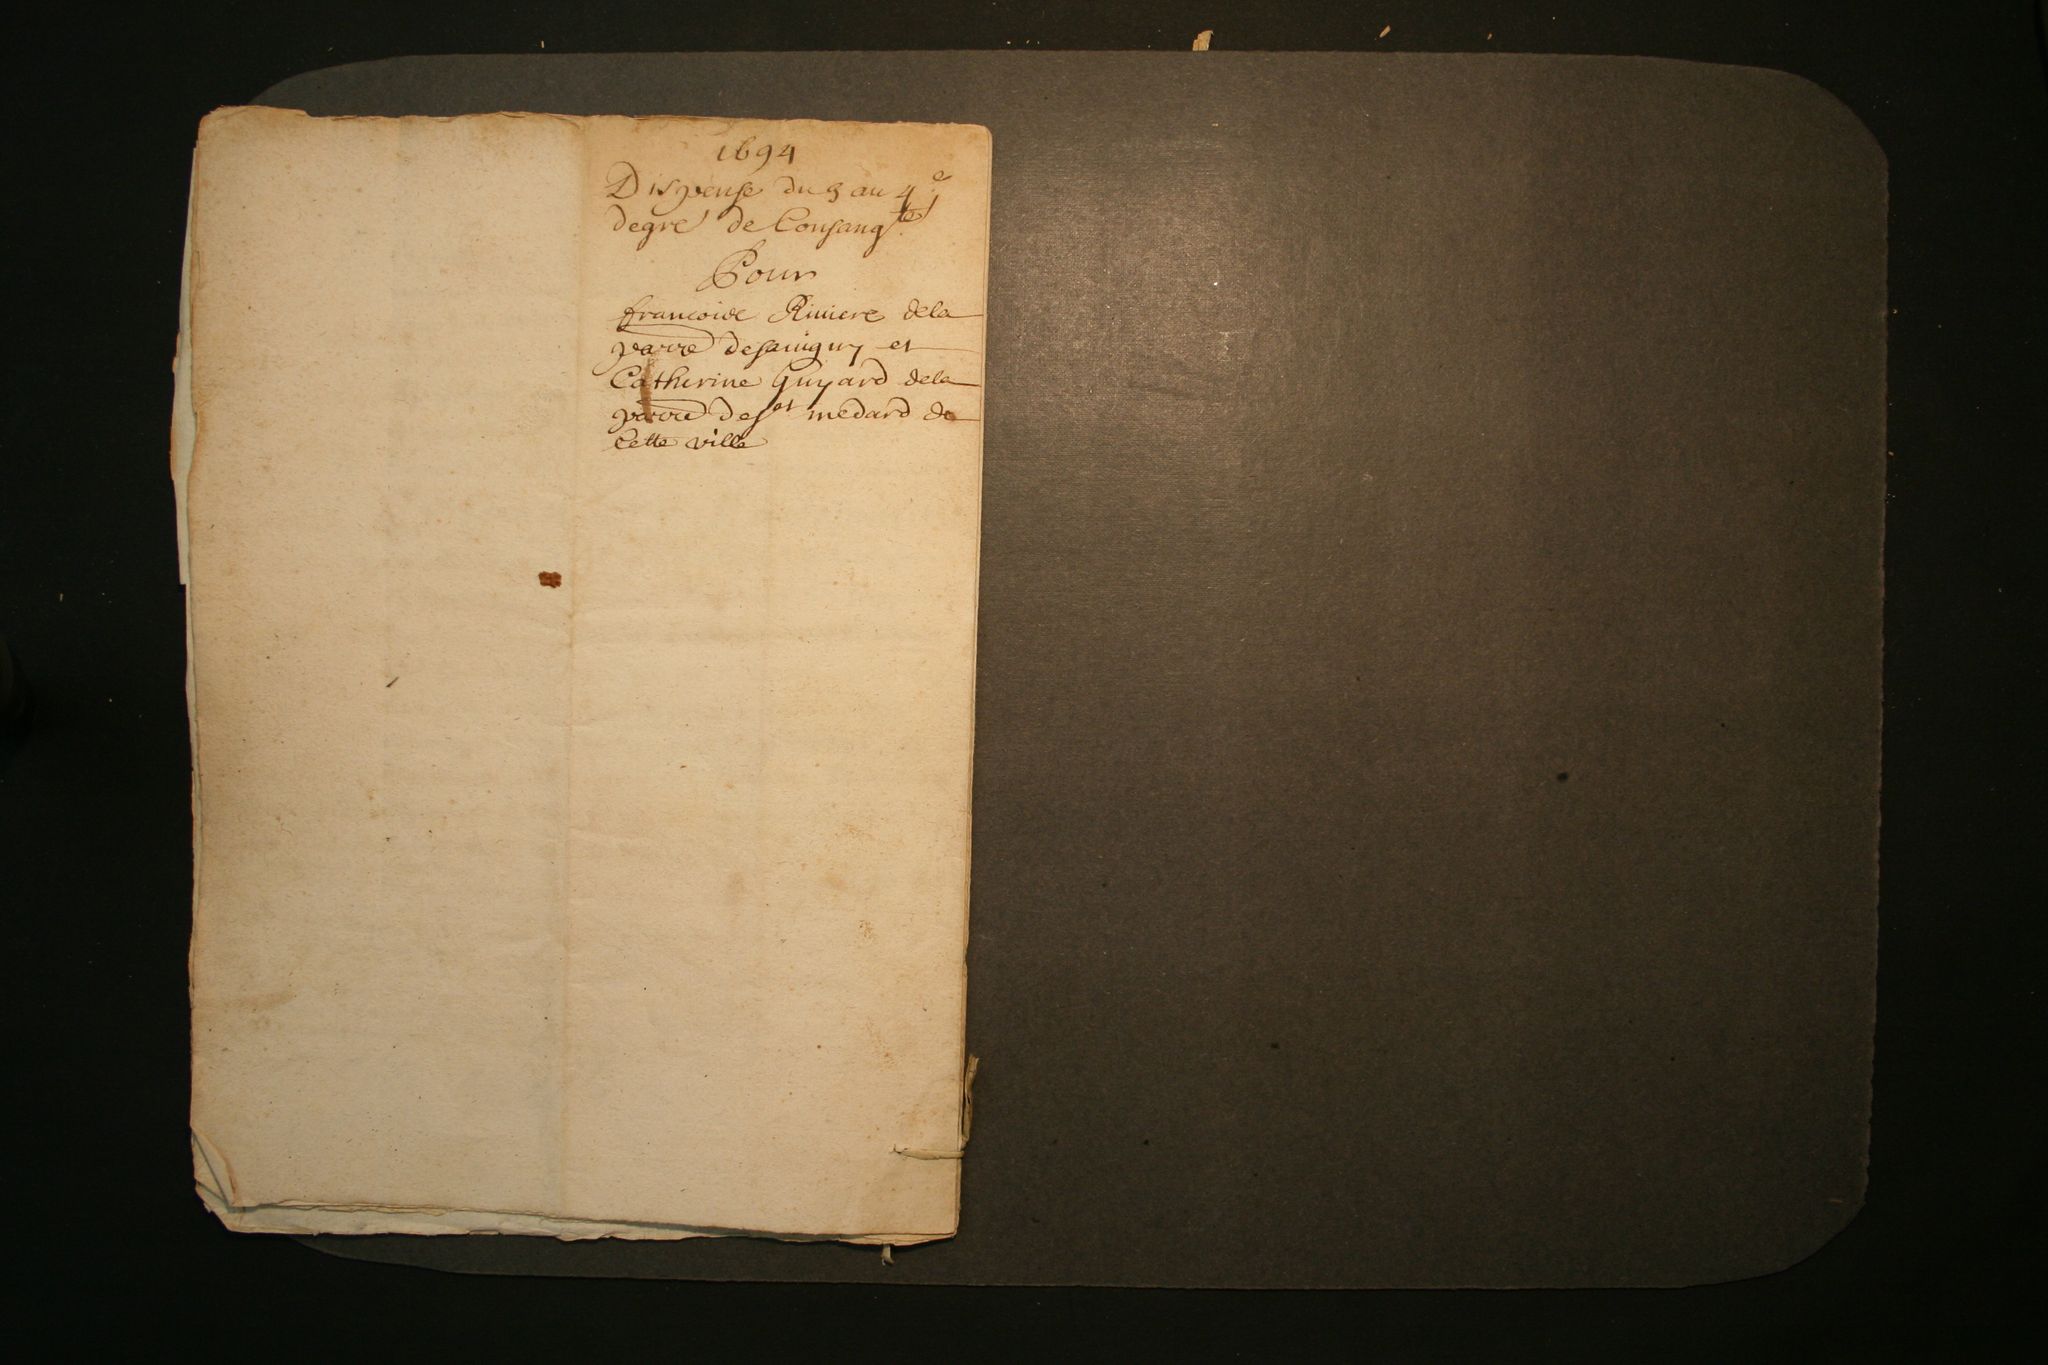 1694
Dispense du 3 au 4e
degré de Consangté
Pour
francoise Riviere dela
parre desavigny et
Catherine Guyard dela
parre de st medard de
Cette ville